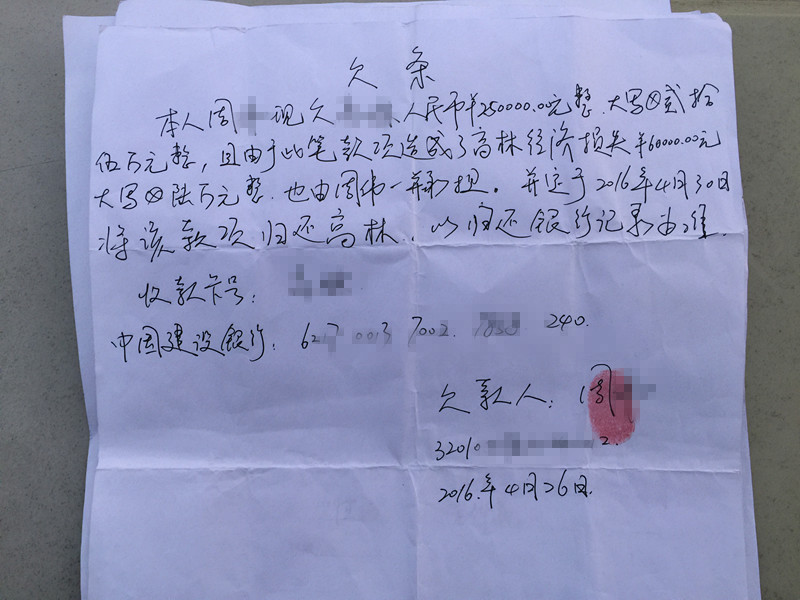 欠条
本人周 现欠 人民币¥250000.00元整.大写⊗贰拾
伍万元整,且由于此笔款项造成了高林经济损失¥60000.00元
大写⊗陆万元整.也由周伟一并承担。并定于2016年4月30日
将该款项归还高林.以归还银行记录为准.
收款卡号:
中国建设银行: 7002. 240.
欠款人:周
3201 2.
2016.年4月26日.